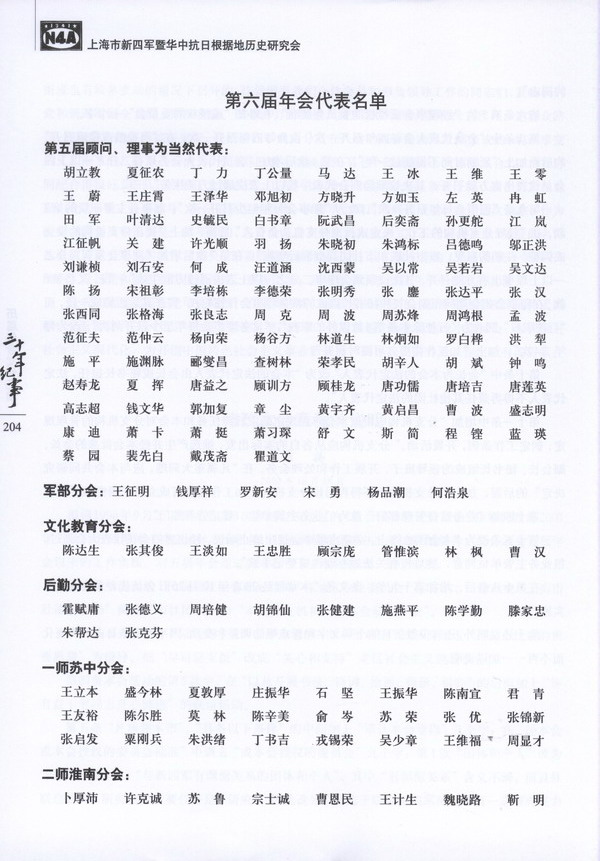 N4A
上海市新四军暨华中抗日根据地历史研究会
第六届年会代表名单
第五届顾问、理事为当然代表：
胡立教 夏征农 丁 力 丁公量 马 达 王 冰 王 维 王 零
王 蔚 王仕霄 王泽华 邓旭初 方晓升 方如玉 左 英 冉 虹
田 军 叶清达 史毓民 白书章 阮武昌 后奕斋 孙更舵 汇 岚
江征帆 关 建 许光顺 羽 扬 朱晓初 朱鸿标 吕德鸣 邬正洪
刘谦桢 刘石安 何 成 汪道涵 沈西蒙 吴以常 吴若岩 吴文达
陈 扬 宋祖彰 李培栋 李德荣 张明秀 张 鏖 张达平 张 汉
张西同 张格海 张良志 周 克 周 波 周苏烽 周鸿根 孟 波
范征夫 范仲云 杨向荣 杨谷方 林道生 林炯如 罗白桦 洪 犁
施 平 施渊脉 郦燮昌 查树林 荣孝琪 胡辛人 胡 斌 钟 鸣
赵寿龙 夏 挥 唐益之 顾训方 顾桂龙 唐功儒 唐培吉 唐莲英
高志超 钱文华 郭加复 章 尘 黄宇齐 黄启昌 曹 波 盛志明
康 迪 董 竹 萧卡 萧彐聚 舒 文 斯 简 程 铿 蓝 瑛
蔡 园 裴先白 戴茂斋 瞿道文
军部分会：王征明 钱厚祥 罗新安 宋 勇 杨品潮 何浩泉
文化教育分会：
陈达生 张其俊 王淡如 王忠胜 顾宗庞 管惟滨 林 枫 曹 汉
后勤分会：
霍赋庸 张德义 周培健 胡锦仙 张健建 施燕平 陈学勤 滕家忠
朱帮达 张克芬
一师苏中分会：
王立本 盛今林 夏敦厚 庄振华 石 坚 王振华 陈南宜 君 青
王友裕 陈尔胜 莫 林 陈辛美 俞 岑 苏 荣 张 优 张锦新
张启发 粟刚兵 朱洪绪 丁书吉 裘锡荣 吴少章 王维福 周显才
二师淮南分会：
卜厚沛 许克诚 苏 鲁 宗士诚 曹恩民 王计生 魏晓路 靳 明
三十年纪事
204